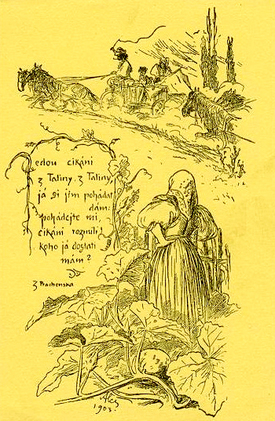 Jedou cikáni
z Tatiny, z Tatiny,
já si jim pohádat
dám:
pohádejte mi,
cikáni rozmilí,
koho já dostati
mám?
Z Prachenska
1903.